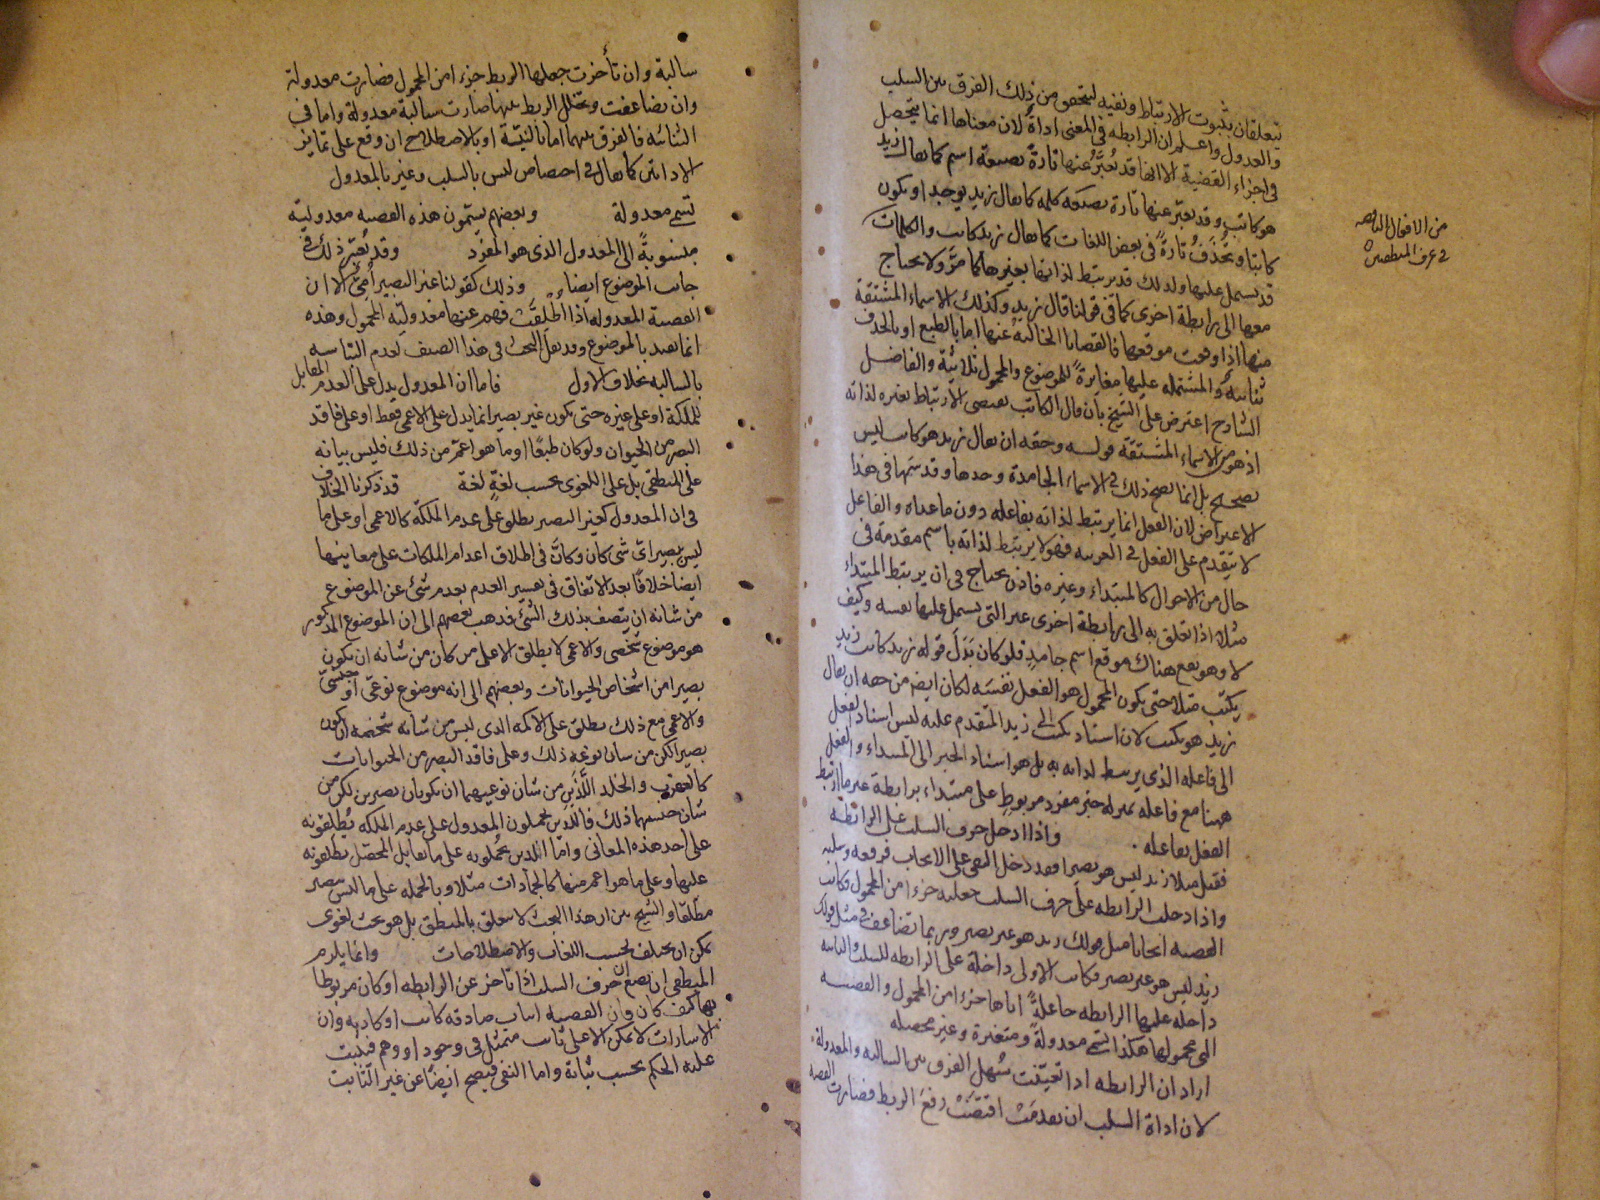 يتعلقان بثبوت الارتباط ونفيه ليتحقق من ذلك الفرق بين السلب
والعدول واعلم ان الرابطه في المعنى اداة لان معناها انما يتحصل
في اجزاء القضية الا انها قد يُعبَّر عنها تارة بصيغة اسم كما يقال زيد
هو كاتب وقد يعبّر عنها تارة بصيغه كلمه كما يقال زيد يوجد او يكون
كاتبا وتُحذَف تارةً في بعض اللغات كما يقال زيد كاتب والكلمات
قد يشمل عليها ولذلك قد يرتبط لذاتها بغيرها كما مرّ ولا يحتاج
معها الى رابطة اخرى كما في قولنا قال زيد وكذلك الاسماء المشتقة
منها اذا وقعت موقعها فالقضايا الخالية عنها اما بالطبع او بالحذف
ثنائية والمشتمله عليها مغايرةً للموضوع والمحمول ثلاثية والفاضل
الشارح اعترض على الشيخ بان قال الكاتب يقتضى الارتباط بغيره لذاته
اذ هو من الاسماء المشتقة قوله وحقه ان يقال زيد هو كاتب ليس
بصحيح بل انما يصح ذلك في الاسماء الجامدة وحدها وقد سها في هذا
الاعتراض لان الفعل انما يرتبط لذاته بفاعله دون ما عداه والفاعل
لا يتقدم على الفعل في العربيه فهو لا يرتبط لذاته باسم مقدمه في
حال من الاحوال كالمبتداء وغيره فاذن يحتاج في ان يرتبط المبتداء
مثلا اذا تعلق به الى رابطة اخرى غير التى يشمل عليها نفسه وكيف
لا وهو يقع هناك موقع اسم جامد فلو كان بَدَلَ قوله زيد كاتب زيد
يكتب مثلا حتى يكون المحمول هو الفعل نفسَه لكان ايضا من حقه ان يقال
زيد هو يكتب لان اسناد يكتب الى زيد المتقدم عليه ليس اسناد الفعل
الى فاعله الذى يرتبط لذاته به بل هو اسناد الخبر الى المبتداء والفعل
ههنا مع فاعله بمنزله خبر مفرد مربوط على مبتداء برابطة غير ما ارتبط
الفعل بفاعله واذا ادخل حرف السلب على الرابطه
فقيل مثلا زيد ليس هو بصيرا فقد دخل النفى على الايجاب فرفعه وسلبه
واذا دخلت الرابطه على حرف السلب جعلته جزءا من المحمول وكانت
القضيه ايجابا مثل قولك زيد هو غير بصير وربما يضاعف في مثل قولك
زيد ليس هو غير بصير فكانت الاولى داخلة على الرابطه للسلب والثانيه
داخله عليها الرابطه جاعلةً اياها جزءا من المحمول والقضيه
التى محمولها هكذا تسمى معدولة ومتغيرة وغير محصله
اراد ان الرابطه اذا تعيّنت سُهل الفرق بين السالبه والمعدولة
لان اداة السلب ان تقدمَتْ اقتضَتْ رفعَ الربط فصارت القضيه
من الافعال الناقصه
في عرف المنطقيين
سالبة وان تأخرت جعلها الربط جزءا من المحمول فصارت معدولة
وان تضاعفت وتخلل الربط بينهما صارت سالبة معدولة واما في
الثنائيه فالفرق بينهما اما بالنيّة او بالاصطلاح ان وقع على تمايز
الاداتين كما يقال في اختصاص ليس بالسلب وغير بالعدول
تسمى معدولة وبعضهم يسمّون هذه القضيه معدوليّة
منسوبةً الى المعدول الذى هو المفرد وقد يُعتبر ذلك في
جانب الموضوع ايضا وذلك كقولنا غير البصير اُمِيٌّ الا ان
القضية المعدوله اذا اُطلِقَت فُهم عنها معدوليّه المحمول وهذه
انما تقيد بالموضوع وقد يقل البحث في هذا الصنف لعدم التباسه
بالسالبه بخلاف الاول فاما ان المعدول يدل على العدم المقابل
للملكة او على غيره حتى يكون غير بصير انما يدل على الاعمى فقط او على فاقد
البصر من الحيوان ولو كان طبعًا او ما هو اعمّ من ذلك فليس بيانه
على المنطقى بل على اللغوى بحسب لغةٍ لغة قد ذكرنا الخلاف
في ان المعدول كغير البصير يطلق على عدم الملكة كالاعمى او على ما
ليس ببصير اىّ شئ كان وكانَ في اطلاق اعدام الملكات على معاينها
ايضا خلافًا بعد الاتفاق في تفسير العدم بعدم شئ عن الموضوع
من شانه ان يتصف بذلك الشئ فذهب بعضهم الى ان الموضوع المذكور
هو موضوع شخصى والاعمى لا يطلق الا على من كان من شانه ان يكون
بصيرا من اشخاص الحيوانات وبعضهم الى انه موضوع نوعىّ او جنسىّ
والاعمى مع ذلك يطلق على الاكمه الذى ليس من شأنه شخصه ان يكون
بصيرا لكن من شان نوعه ذلك وعلى فاقد البصر من الحيوانات
كالعقرب والخلد اللَّذَينِ من شان نوعيهما ان يكونا بصيرين لكن من
شان جنسهما ذلك فالذين يحملون المعدول على عدم الملكه يُطلقونه
على احد هذه المعانى وامّا الذين يحملونه على ما يقابل المحصّل يطلقونه
عليها وعلى ما هو اعم منها كالجمادات مثلا وبالجمله على ما ليس ببصير
مطلقا والشيخ بين ان هذا البحث لا يتعلق بالمنطق بل هو بحث لغوى
يمكن ان يختلف بحسب اللغات والاصطلاحات وانما يلزم
المنطقى ان يضع ان حرف السلب اذا تاخر عن الرابطه او كان مربوطا
بها كيف كان فان القضيه اثبات صادقه كانت او كاذبه وان
الاثبات لا يمكن الا على ثابت متمثل في وجود او وهم فيثبت
عليه الحكم بحسب ثباته واما النفى فيصح ايضًا عن غير الثابت